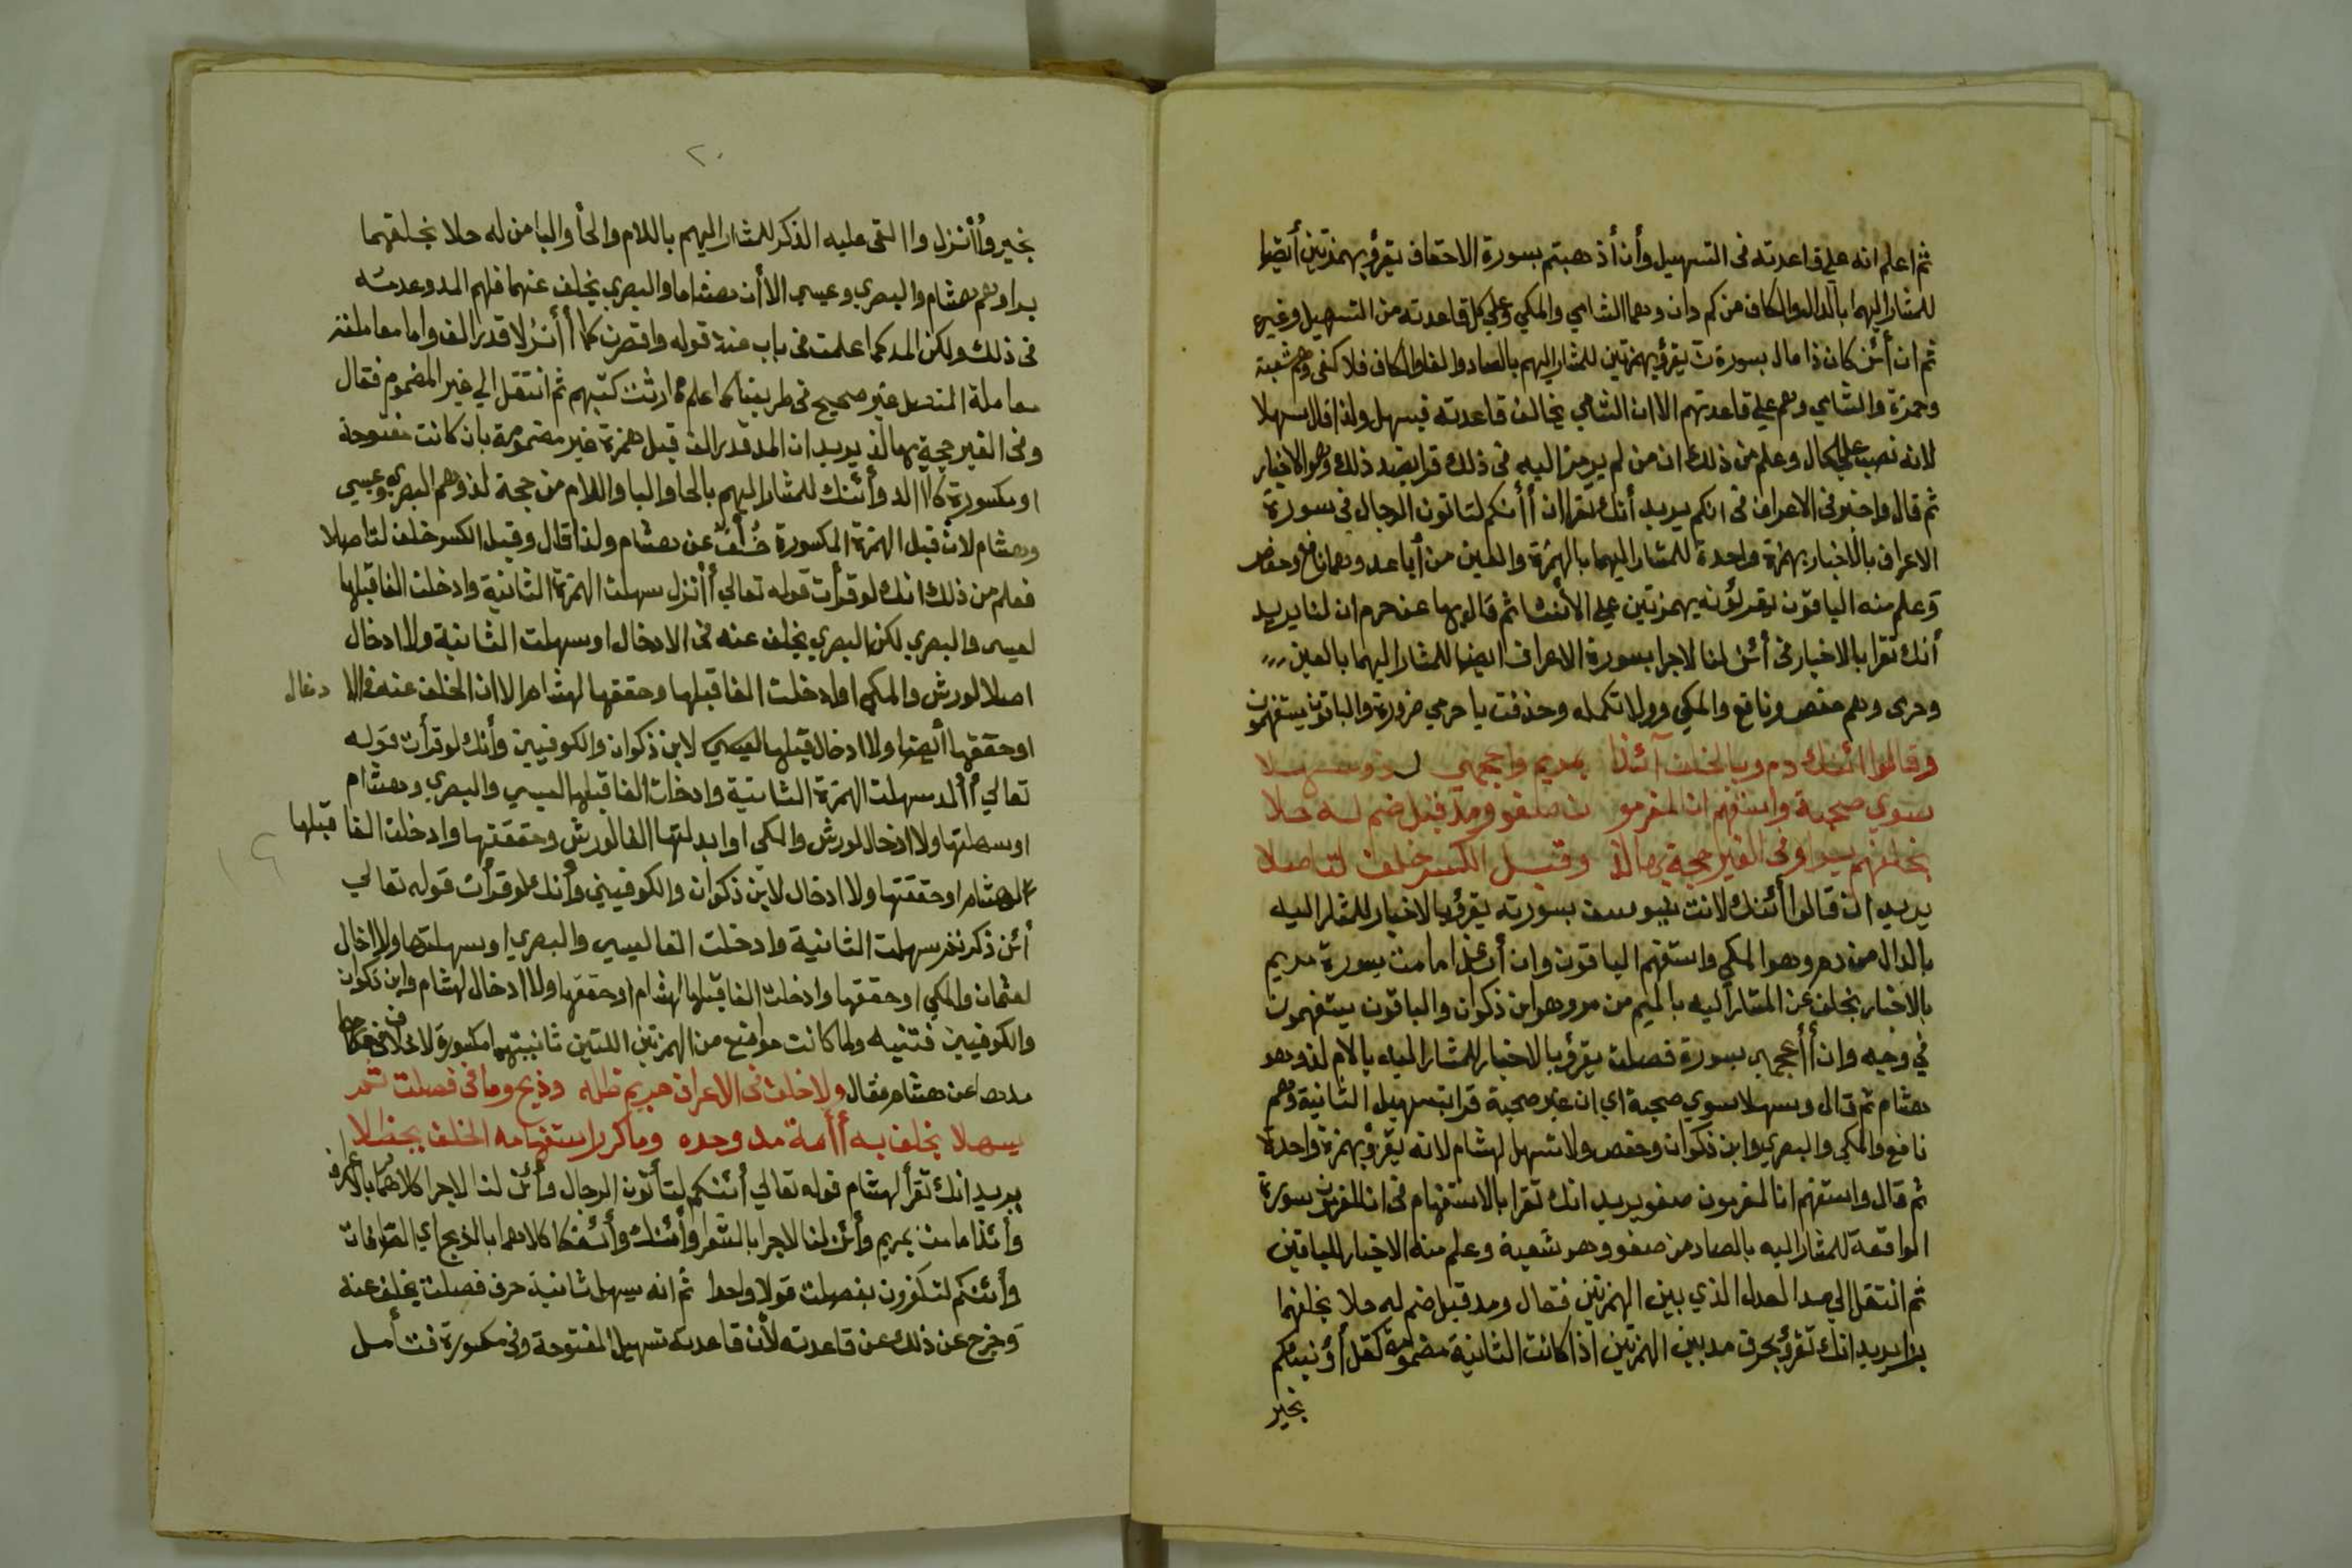 ثم اعلم انه علي قاعدته في التسهيل وأن أذهبتم بسورة الاحقاف يقرؤ بهمزتين أيضا
للمشار اليهما بالدال والكاف من كم دان وهما الشامي والمكي وعلي كل قاعدته من التسهيل وغيره
ثم ان أئن كان ذا مال بسورة ن يقرؤ بهمزتين للمشار اليهم بالصاد والفا والكاف فلا كفي وهم شعبة
وحمزة والشامي وهم علي قاعدتهم الا ان الشامي يخالف قاعدته فيسهل ولذا قال سهلا
لانه نصب علي الحال وعلم من ذلك ان من لم يرمز اليه في ذلك قرا بضد ذلك وهو الاخبار
ثم قال واخبر في الاعراف في انكم يريد أنك تقرا ان أأنكم لتاتون الرجال في سورة
الاعراف بالاخبار بهمزة واحدة للمشار اليهما بالهمزة والعين من أيا عد وهما نافع وحفص
وعلم منه الباقون يقرؤنه بهمزتين علي الأنشا ثم قال بها عن حرم ان لنا يريد
أنك تقرا بالاخبار في أئن لنا لاجرا بسورة الاعراف ايضا للمشار اليهما بالعين
وحرمي وهم حفص ونافع والمكي وولا تكمله وحذفت يا حرمي ضرورة والباقون يستفهمون
وقالوا أئنك دم وبالخلف آئذا بمريم واعجمي لذ وسهلا
سوي صحبة واستفهم ان المغرمون صفو ومد قبل ضم له حلا
بخلفهم برا وفي الغير حجة بها لذ وقبل الكسر خلف لتاصلا
يريد ان قالوا أئنك لانت بيوسف بسورته يقرؤ بالاخبار للمشار اليه
بالدال من دم وهو المكي واستفهم الباقون وان أئذا ما مت بسورة مريم
بالاخبار بخلف عن المشار اليه بالميم من مر وهو ابن ذكوان والباقون يستفهمون
في وجيه وان أأعجمي بسورة فصلت يقرؤ بالاخبار للمشار اليه بالام لذ وهو
هشام ثم قال وسهلا سوي صحبة اي ان غير صحبة قرا بتسهيل الثانية وهم
نافع والمكي والبصري وابن ذكوان وحفص ولا تسهل لهشام لانه يقرؤ بهمزة واحدة
ثم قال واستفهم انا لمغرمون صفو يريد انك تقرا بالاستفهام في انا لمغرمون بسورة
الواقعة للمشار اليه بالصاد من صفو وهو شعبة وعلم منه الاخبار للباقين
ثم انتقل الي المد الذي بين الهمزتين فقال ومد قبل ضم له حلا بخلفهما
برا يريد انك تقرؤ بحرف مد بين الهمزتين اذا كانت الثانية مضمومة كقل أؤنبئكم
بخير
٢٠
بخير وأأنزل واالقي عليه الذكر للمشار اليهم باللام والحأ والبا من له حلا بخلفهما
برا وهم هشام والبصري وعيسي الا أن هشاما والبصري بخلف عنهما فلهم المد وعدمه
في ذلك ولكن المد كما علمت في باب عند قوله واقصرن كما أأنزلا قدر الف واما معاملته
معاملة المنفصل غير صحيح في طريقنا كما اعلم ثم انتقل الي غير المضموم فقال
وفي الغير حجة بها لذ يريد ان المد قدر الف قبل همزة غير مضمومة بان كانت مفتوحة
او مكسورة كاالد وأئنك للمشار اليهم بالحا والبا واللام من حجة لذ وهم البصري وعيسي
وهشام لان قبل الهمزة المكسورة خلف عن هشام ولذا قال وقبل الكسر خلف لتاصلا
فعلم من ذلك انك لو قرأت قوله تعالي أأنزل سهلت الهمزة الثانية وادخلت الفا قبلها
لعيسي والبصري لكن البصري بخلف عنه في الادخال او سهلت الثانية ولا ادخال
اصلا لورش والمكي او ادخلت الفا قبلها وحققها لهشام الا ان الخلف عنه في الا دخال
او حققها أيضا ولا ادخال قبلها لابن ذكوان والكوفيين وأنك لو قرأت قوله
تعالي أألد سهلت الهمزة الثانية وادخلت الفا قبلها لعيسي والبصري وهشام
او سهلتها ولا ادخال لورش والمكي او ابدلتها الفا لورش وحققتها وادخلت الفا قبلها
لهشام او حققتها ولا ادخال لابن ذكوان والكوفيين وأنك لو قرأت قوله تعالي
أئن ذكرتم سهلت الثانية وادخلت الفا لعيسي والبصري او سهلتها ولا ادخال
لعثمان والمكي او حققها وادخلت الفا قبلها لهشام او حققها ولا ادخال لهشام وابن ذكوان
والكوفيين فتنبه ولما كانت مواضع من الهمزتين اللتين ثانيتهما مكسورة لا خلاف في
مدها عن هشام فقال ولا خلف في الاعراف مريم ظلة وذبح وما في فصلت
يسهلا بخلف به أأمة مد وحده وما كرر استفهامه الخلف
يريد انك تقرأ لهشام قوله تعالي أئنكم لتأتون الرجال وأئن لنا لاجرا كلاهما بالاعراف
وأئذا ما مت بمريم وأئن لنا لاجرا بالشعرا وأئنك وأئفكا كلاهما بالذبح اي الصافات
وأئنكم لتكفرون بفصلت قولا واحدا ثم انه يسهل ثانية حرف فصلت بخلف عنه
وخرج عن ذلك عن قاعدته لأن قاعدته تسهيل المفتوحة وفي مكسورة فتأمل